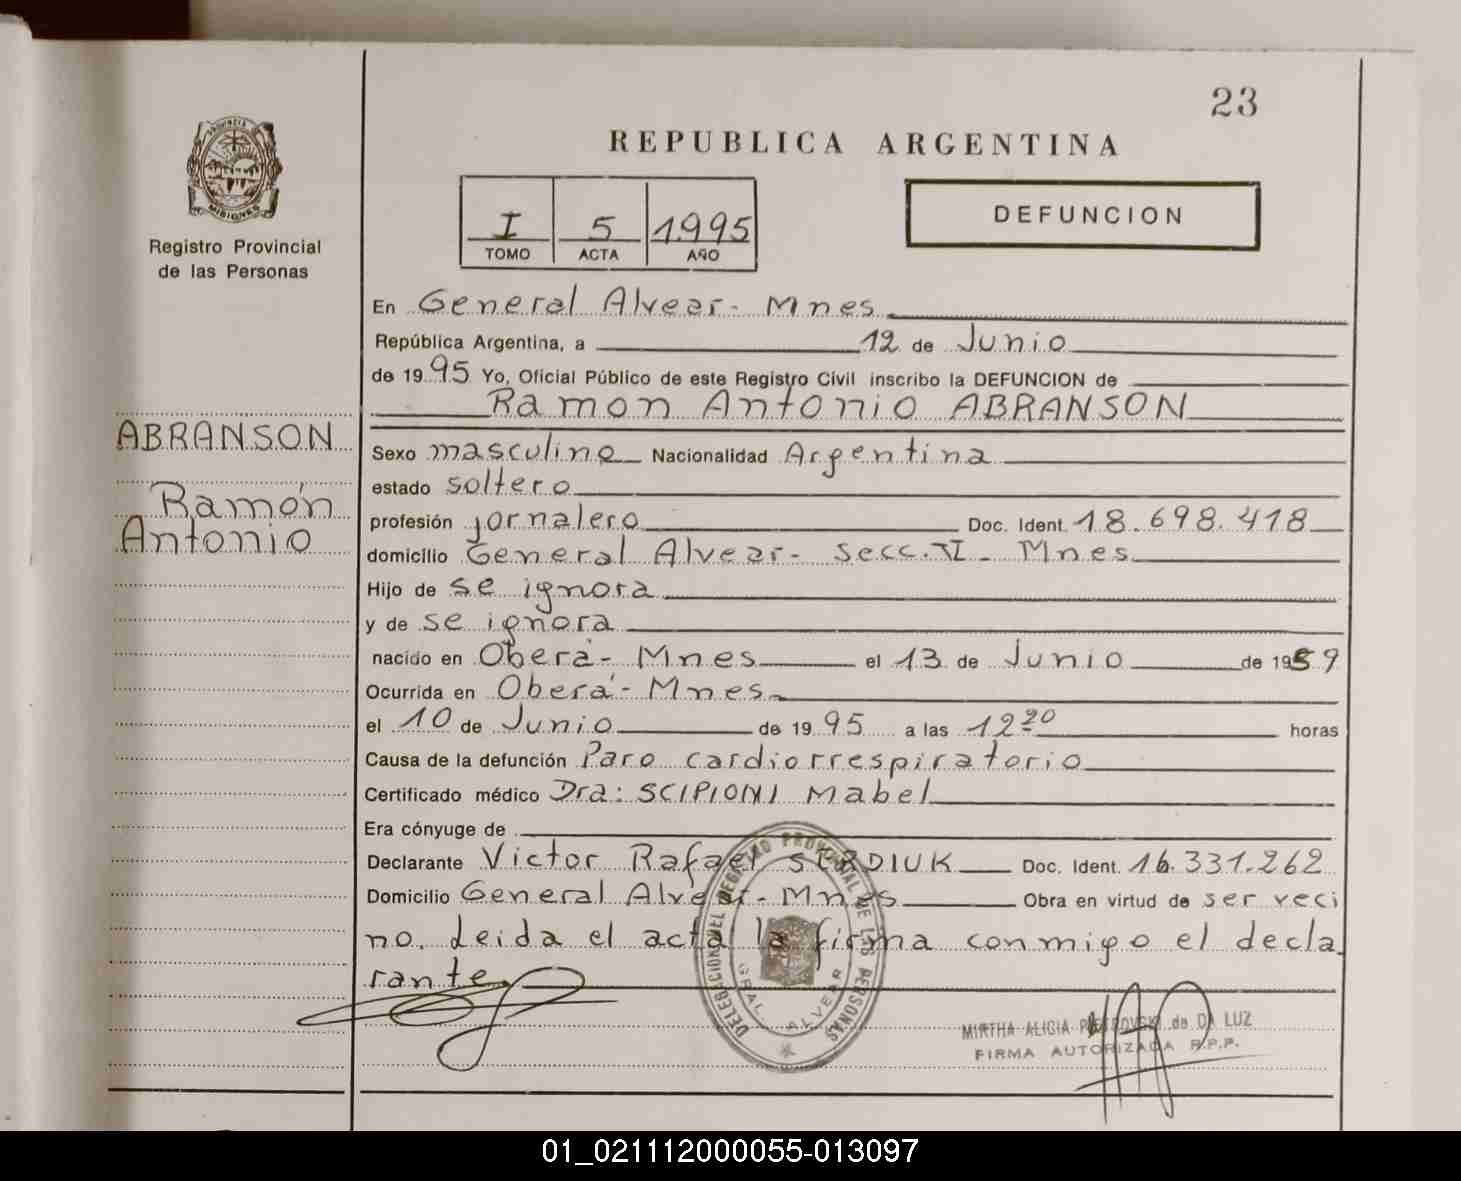 23
REPUBLICA ARGENTINA
PROVINCIA
MISIONES
Registro Provincial
de las Personas
I 5 1995
TOMO ACTA AÑO
DEFUNCION
En General Alvear - Mnes
República Argentina, a 12 de Junio
de 1995 Yo, Oficial Público de este Registro Civil inscribo la DEFUNCION de
Ramon Antonio ABRANSON
ABRANSON
Ramón
Antonio
Sexo masculino Nacionalidad Argentina
estado soltero
profesión jornalero Doc. Ident. 18.698.418
domicilio General Alvear - Secc. VI - Mnes
Hijo de se ignora
y de se ignora
nacido en Oberá - Mnes el 13 de Junio de 1959
Ocurrida en Oberá - Mnes
el 10 de Junio de 1995 a las 12 20 horas
Causa de la defunción Paro cardiorrespiratorio
Certificado médico Dra: SCIPIONI Mabel
Era cónyuge de
Declarante Victor Rafael SERDIUK Doc. Ident. 16.331.262
Domicilio General Alvear - Mnes Obra en virtud de ser veci
no. Leida el acta la firma conmigo el decla
rante
DELEGACION DEL REGISTRO PROVINCIAL DE LAS PERSONAS
GRAL. ALVEAR
MIRTHA ALICIA de DA LUZ
FIRMA AUTORIZADA R.P.P.
01_021112000055-013097